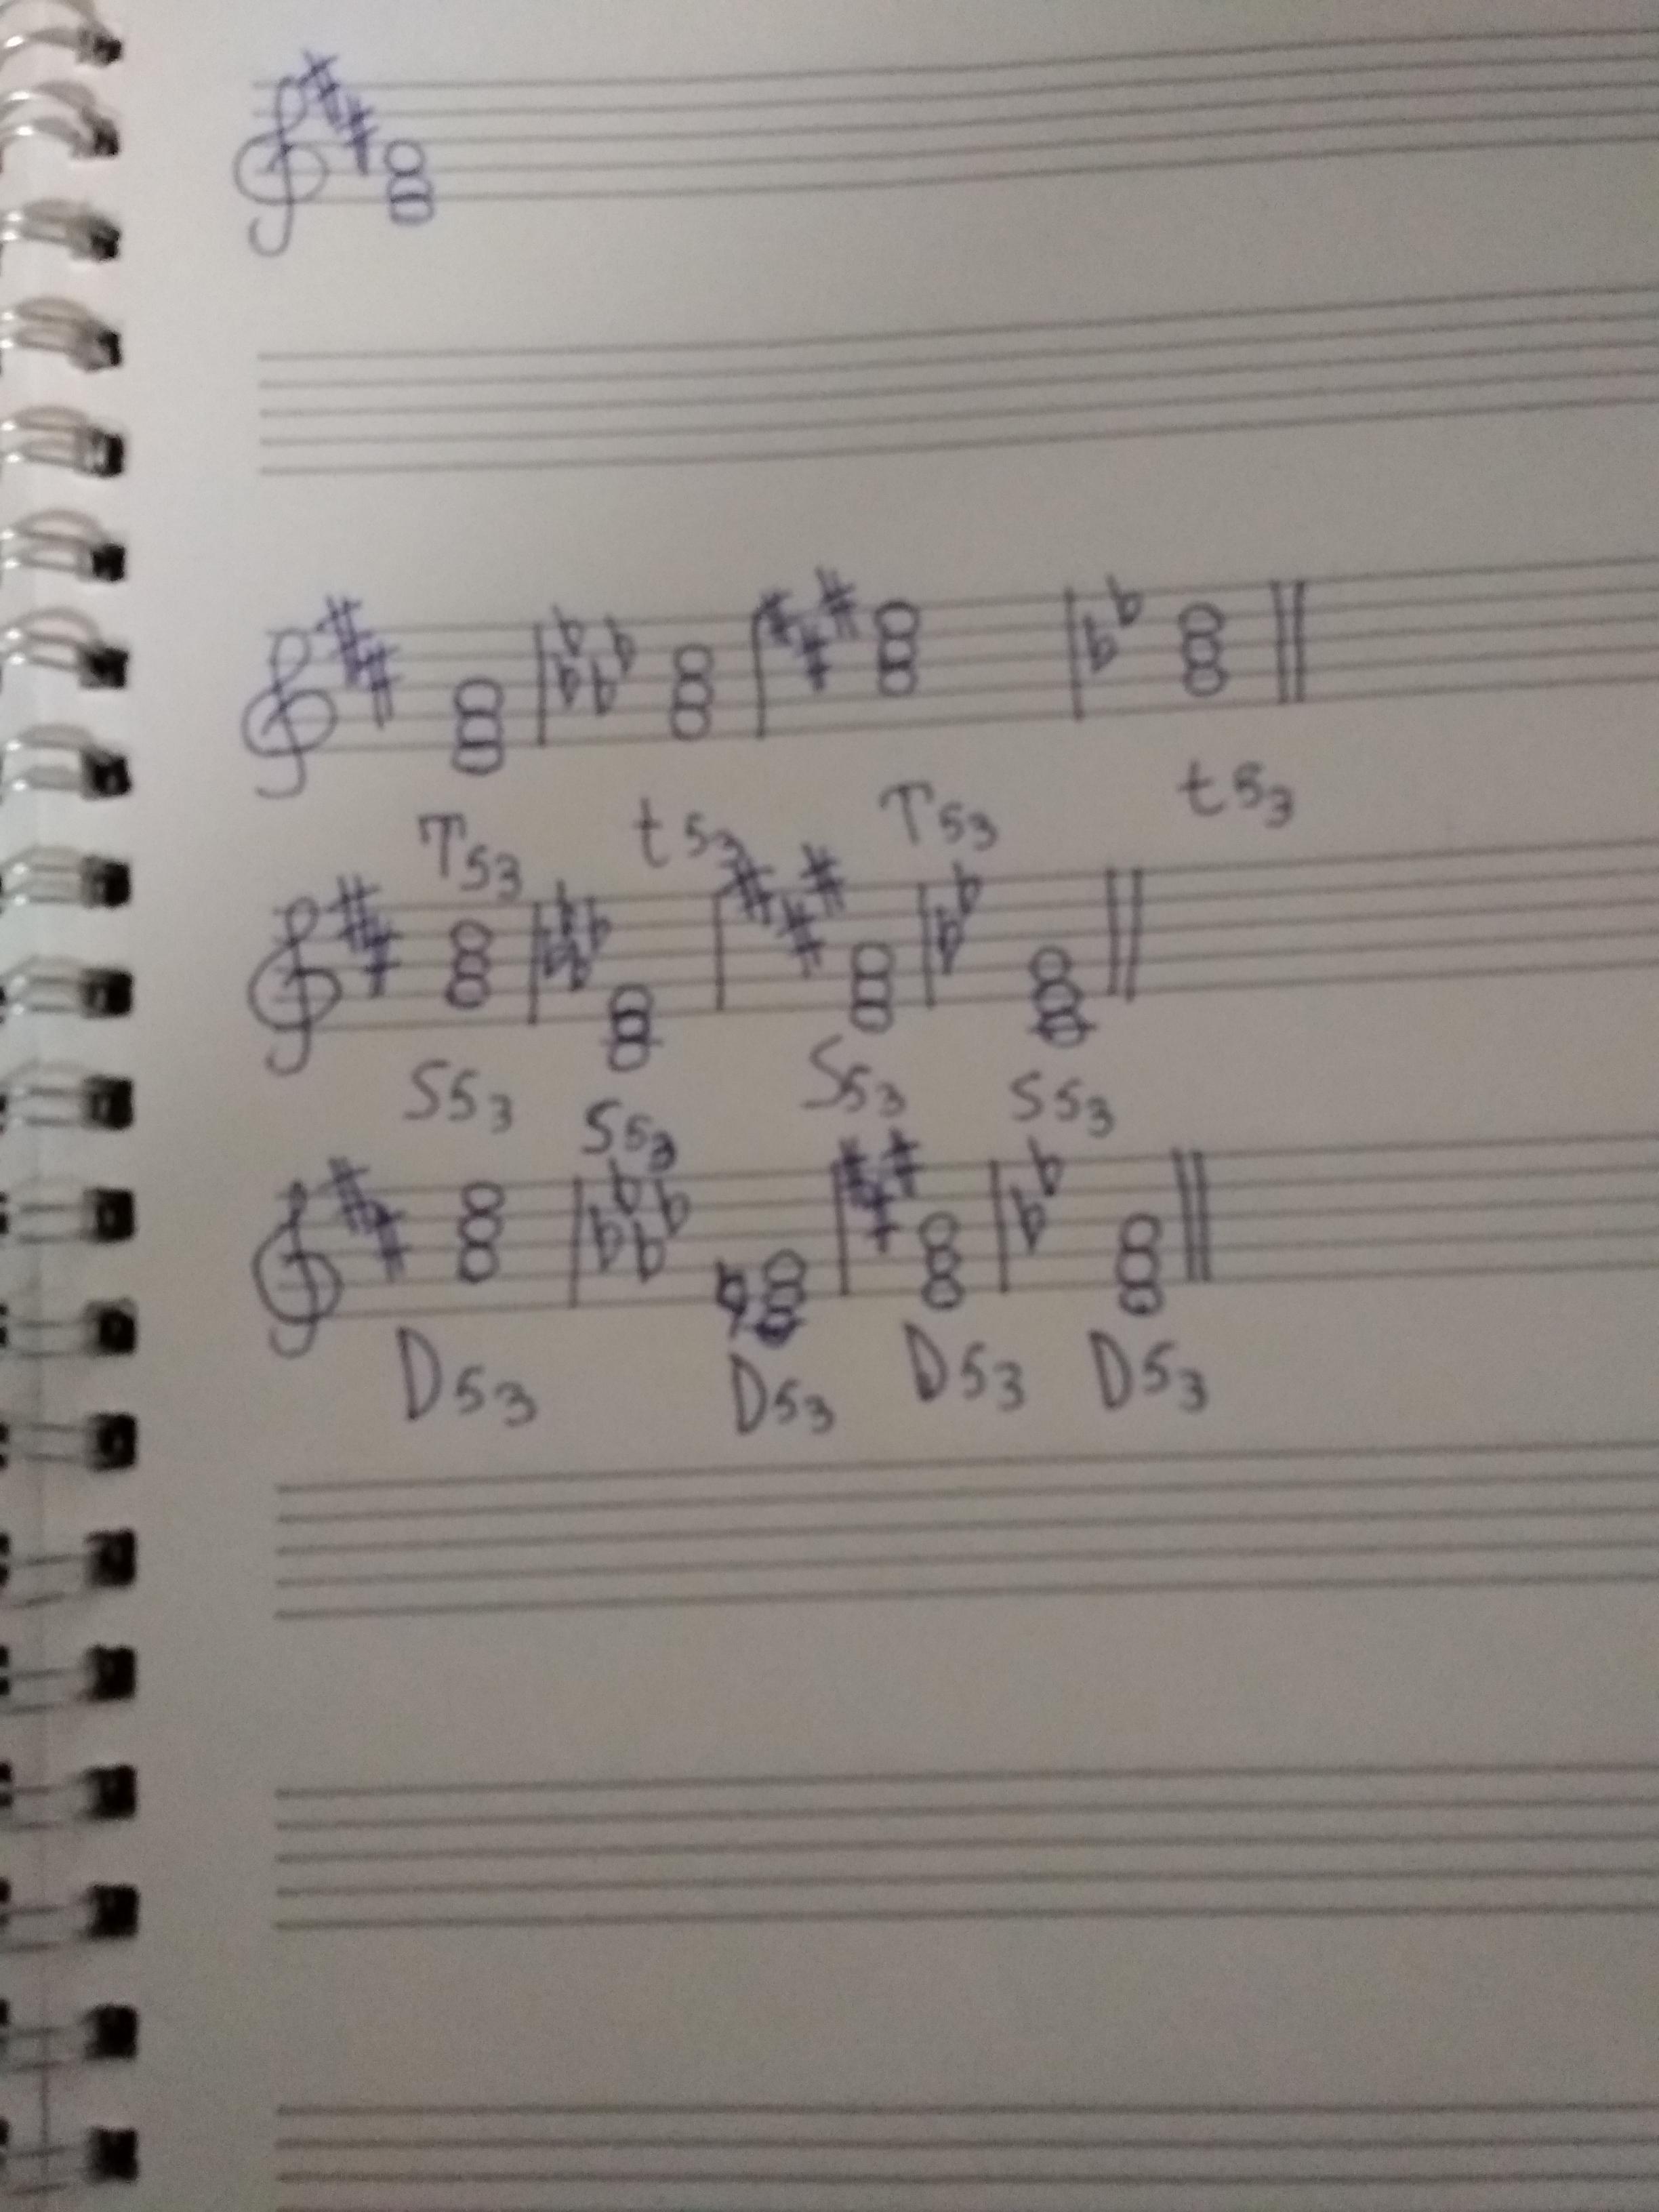 T53 t53 T53 t53
S53 S53 S53 S53
D53 D53 D53 D53